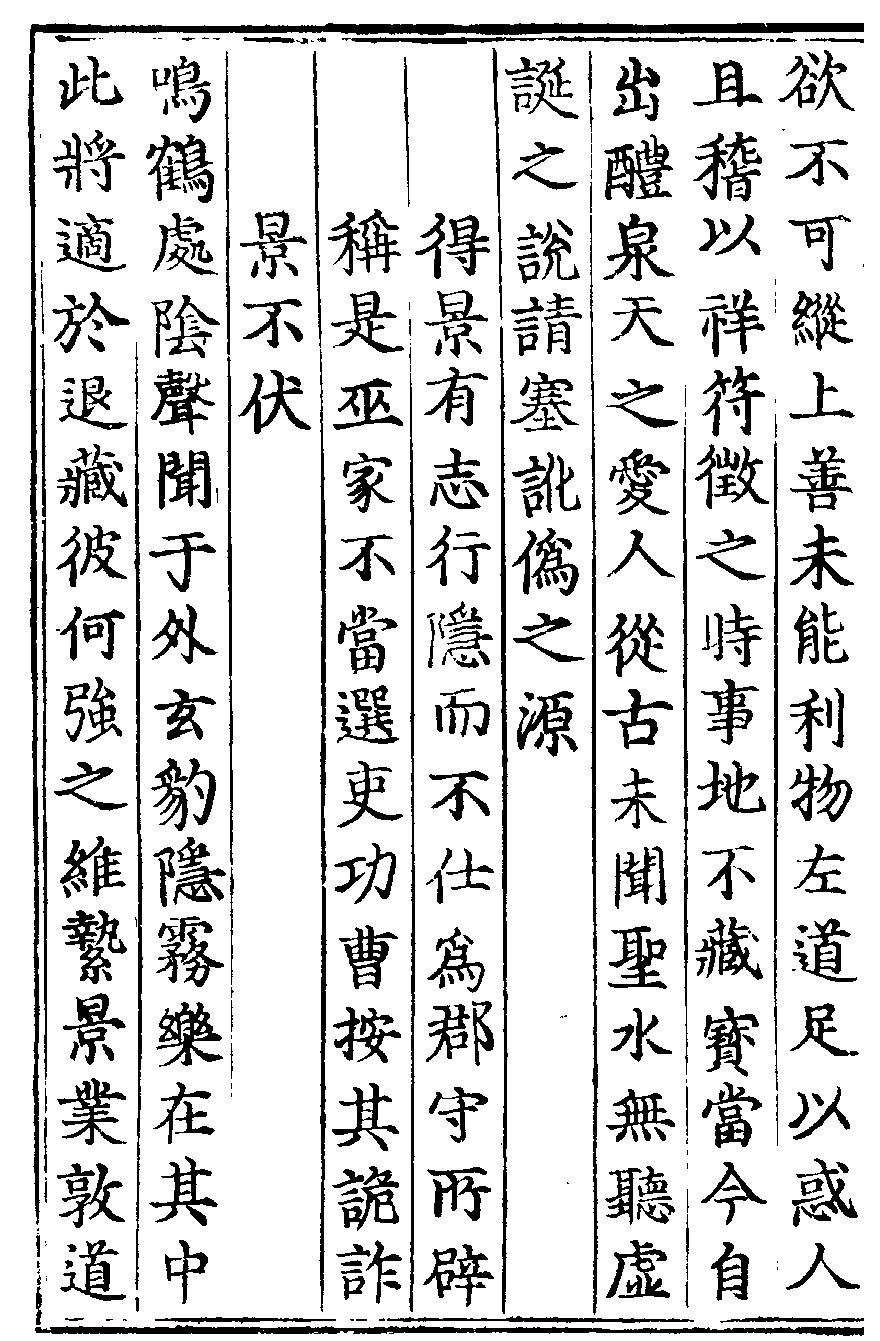 欲不可縱上善未能利物左道足以惑人
且稽以祥符徵之時事地不藏寳當今自
出醴泉天之愛人從古未聞聖水無聽虛
誕之說請塞訛僞之源
得景有志行隱而不仕爲郡守所辟
稱是巫家不當選吏功曹按其詭詐
景不伏
鳴鶴處陰聲聞于外玄豹隱霧樂在其中
此將適於退藏彼何強之維縶景業敦道